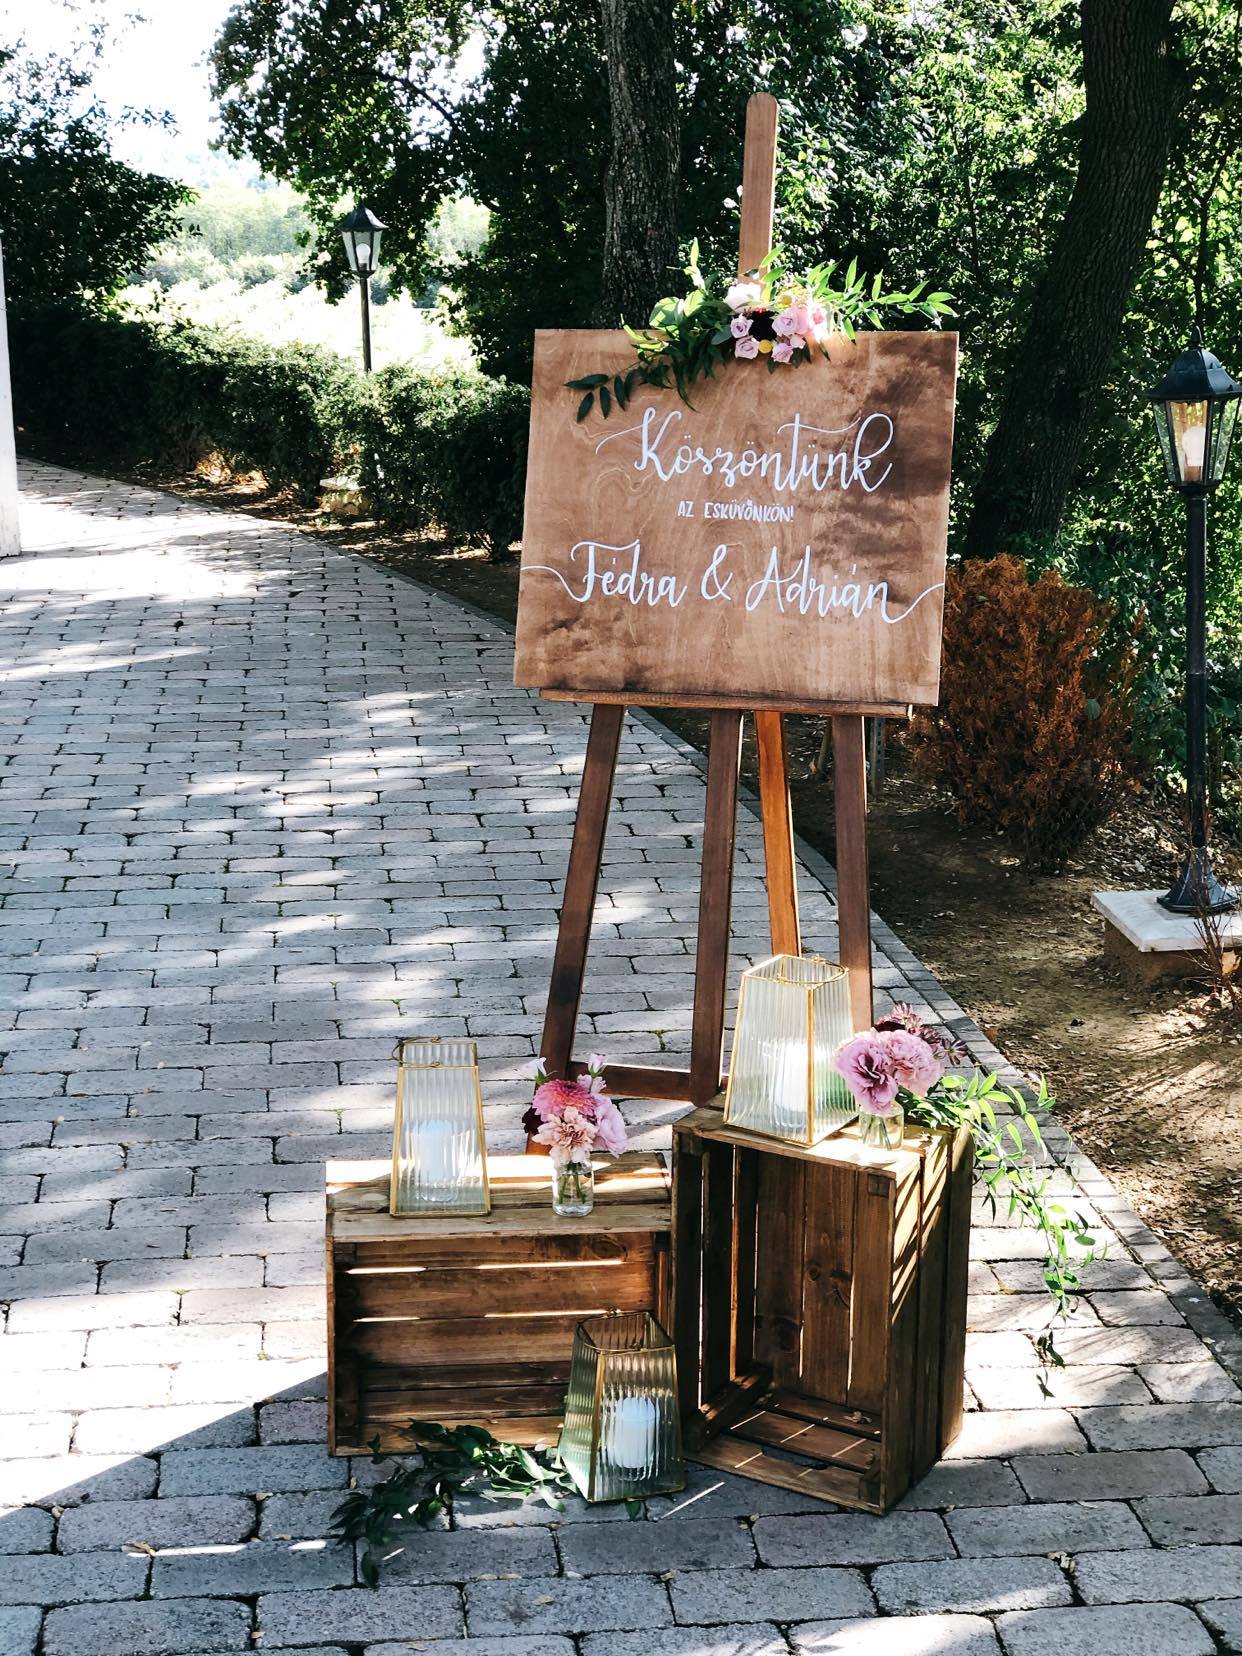 Köszöntünk
AZ ESKÜVŐNKÖN!
Fédra & Adrián